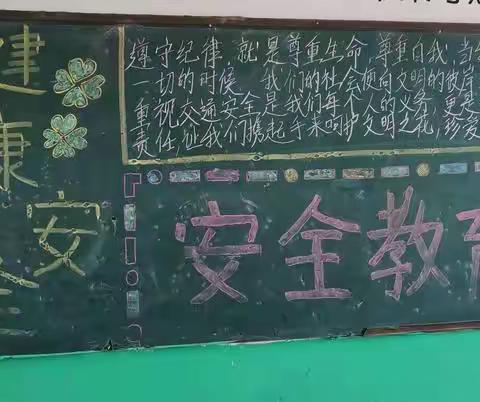 健康
安全
遵守纪律,就是尊重生命,尊重自我,当
一切的时候 我们的社会便向文明的彼岸
重视交通安全是我们每个人的义务,更是
责任,让我们携起手来呵护文明之花,珍爱
安全教育